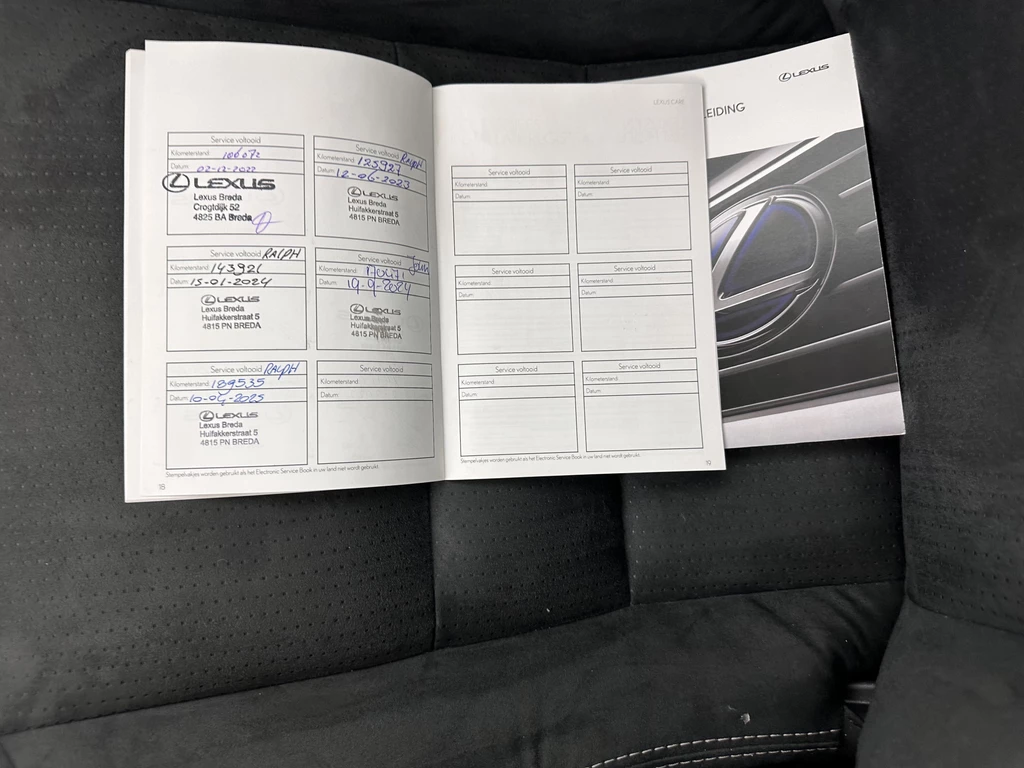 Service voltooid
Kilometerstand: 106072
Datum: 02-12-2022
LEXUS
Lexus Breda
Crogtdijk 52
4825 BA Breda
Service voltooid RALPH
Kilometerstand: 125927
Datum: 12-06-2023
LEXUS
Lexus Breda
Huifakkerstraat 5
4815 PN BREDA
Service voltooid RALPH
Kilometerstand: 143921
Datum: 15-01-2024
LEXUS
Lexus Breda
Huifakkerstraat 5
4815 PN BREDA
Service voltooid
Kilometerstand:
Datum: 19-9-2024
LEXUS
Lexus Breda
Huifakkerstraat 5
4815 PN BREDA
Service voltooid RALPH
Kilometerstand: 189535
Datum: 10-04-2025
LEXUS
Lexus Breda
Huifakkerstraat 5
4815 PN BREDA
Service voltooid
Kilometerstand:
Datum:
Stempelvakjes worden gebruikt als het Electronic Service Book in uw land niet wordt gebruikt.
18
LEXUS CARE
Service voltooid
Kilometerstand:
Datum:
Service voltooid
Kilometerstand:
Datum:
Service voltooid
Kilometerstand:
Datum:
Service voltooid
Kilometerstand:
Datum:
Service voltooid
Kilometerstand:
Datum:
Service voltooid
Kilometerstand:
Datum:
Stempelvakjes worden gebruikt als het Electronic Service Book in uw land niet wordt gebruikt.
19
LEXUS
LEIDING